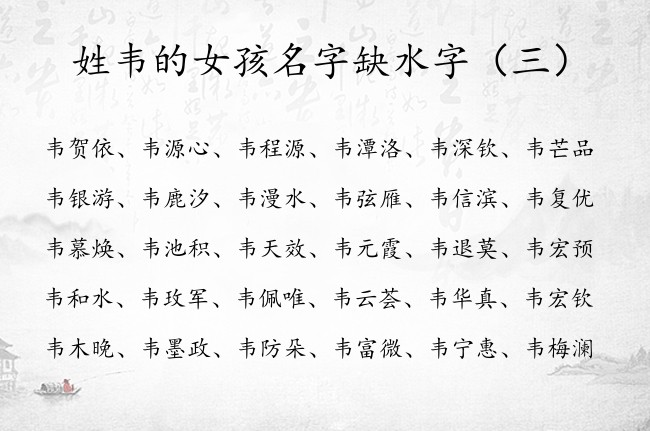 姓韦的女孩名字缺水字（三）
韦贺依、韦源心、韦程源、韦潭洛、韦深钦、韦芒品
韦银游、韦鹿汐、韦漫水、韦弦雁、韦信滨、韦复优
韦慕焕、韦池积、韦天效、韦元霞、韦退莫、韦宏预
韦和水、韦玫军、韦佩唯、韦云荟、韦华真、韦宏钦
韦木晚、韦墨政、韦防朵、韦富微、韦宁惠、韦梅澜